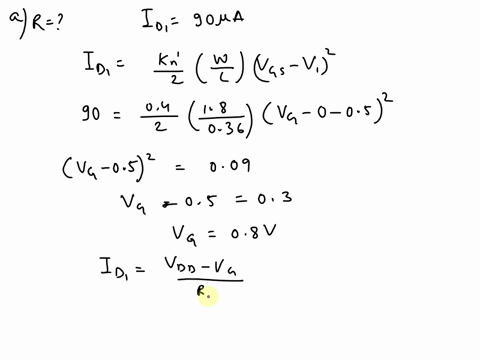 a) R=? I_D1 = 90 μA
I_D1 = Kn'/2 (W/L) (V_GS - V_1)^2
90 = 0.4/2 (1.8/0.36) (V_G - 0 - 0.5)^2
(V_G - 0.5)^2 = 0.09
V_G - 0.5 = 0.3
V_G = 0.8V
I_D1 = V_DD - V_G / R